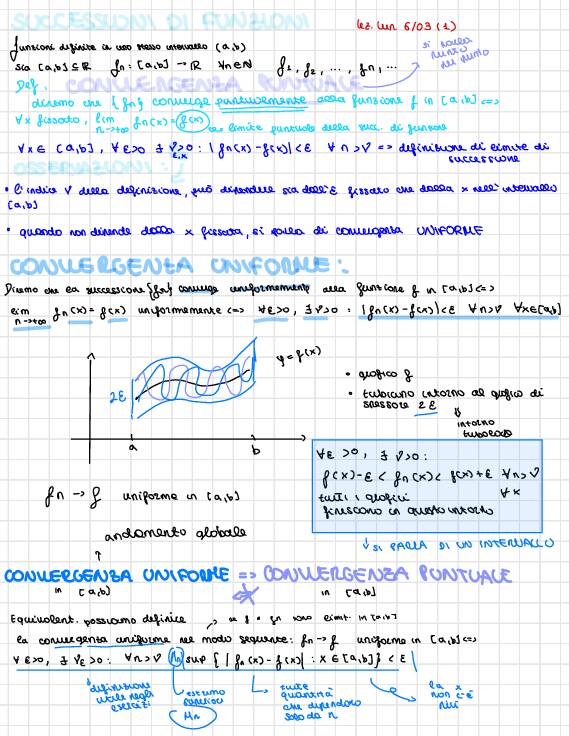 SUCCESSIONI DI FUNZIONI
lez. lun 6/03 (1)
funzioni definite in uno stesso intervallo (a,b)
sia [a,b] ⊆ ℝ fn: [a,b] → ℝ ∀n∈ℕ f1, f2, ..., fn, ...
si parla
punto
per punto
Def. CONVERGENZA PUNTUALE
diremo che {fn} converge puntualmente alla funzione f in [a,b] <=>
∀x fissato, lim n→+∞ fn(x) = f(x) → limite puntuale della succ. di funzioni
∀x ∈ [a,b], ∀ε>0 ∃ ν>0 : |fn(x)-f(x)|<ε ∀n>ν => definizione di limite di
ε,x
successione
OSSERVAZIONI:
• l'indice ν della definizione, può dipendere sia dall'ε fissato che dalla x nell'intervallo
[a,b]
• quando non dipende dalla x fissata, si parla di convergenza UNIFORME
CONVERGENZA UNIFORME:
Diremo che la successione {fn} converge uniformemente alla funzione f in [a,b] <=>
lim n→+∞ fn(x) = f(x) uniformemente <=> ∀ε>0, ∃ν>0 : |fn(x)-f(x)|<ε ∀n>ν ∀x∈[a,b]
y = f(x)
2ε
a b
• grafico f
• tubicino intorno al grafico di
spessore 2ε
intorno
tubolare
∀ε>0, ∃ν>0:
f(x)-ε < fn(x) < f(x)+ε ∀n>ν
∀x
tutti i grafici
finiscono in questo intorno
fn → f uniforme in [a,b]
andamento globale
↓ SI PARLA DI UN INTERVALLO
CONVERGENZA UNIFORME => CONVERGENZA PUNTUALE
in [a,b] in [a,b]
Equivalent. possiamo definire → se f e fn sono limit. in [a,b]
la convergenza uniforme nel modo seguente: fn → f uniforme in [a,b] <=>
∀ε>0, ∃νε>0: ∀n>ν sup { |fn(x)-f(x)| : x∈[a,b] } < ε
definizione
utile negli
esercizi
estremo
superiore
Mn
tutte
quantità
che dipendono
solo da n
la x
non c'è
più